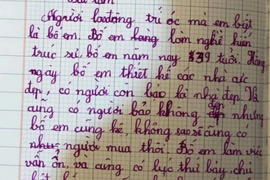 Người lao động trí óc mà em biết
là bố em. Bố em đang làm nghề kiến
trúc sư bố em năm nay 39 tuổi. Hằng
ngày bố em thiết kế các nhà cực
đẹp, có người còn bảo là nhà đẹp. Và
cũng có người bảo không đẹp nhưng
bố em cũng kệ, không sao sẽ cũng có
người mua thôi. Bố em làm việc
vẫn ổn, và cũng có lúc thứ bảy, chủ